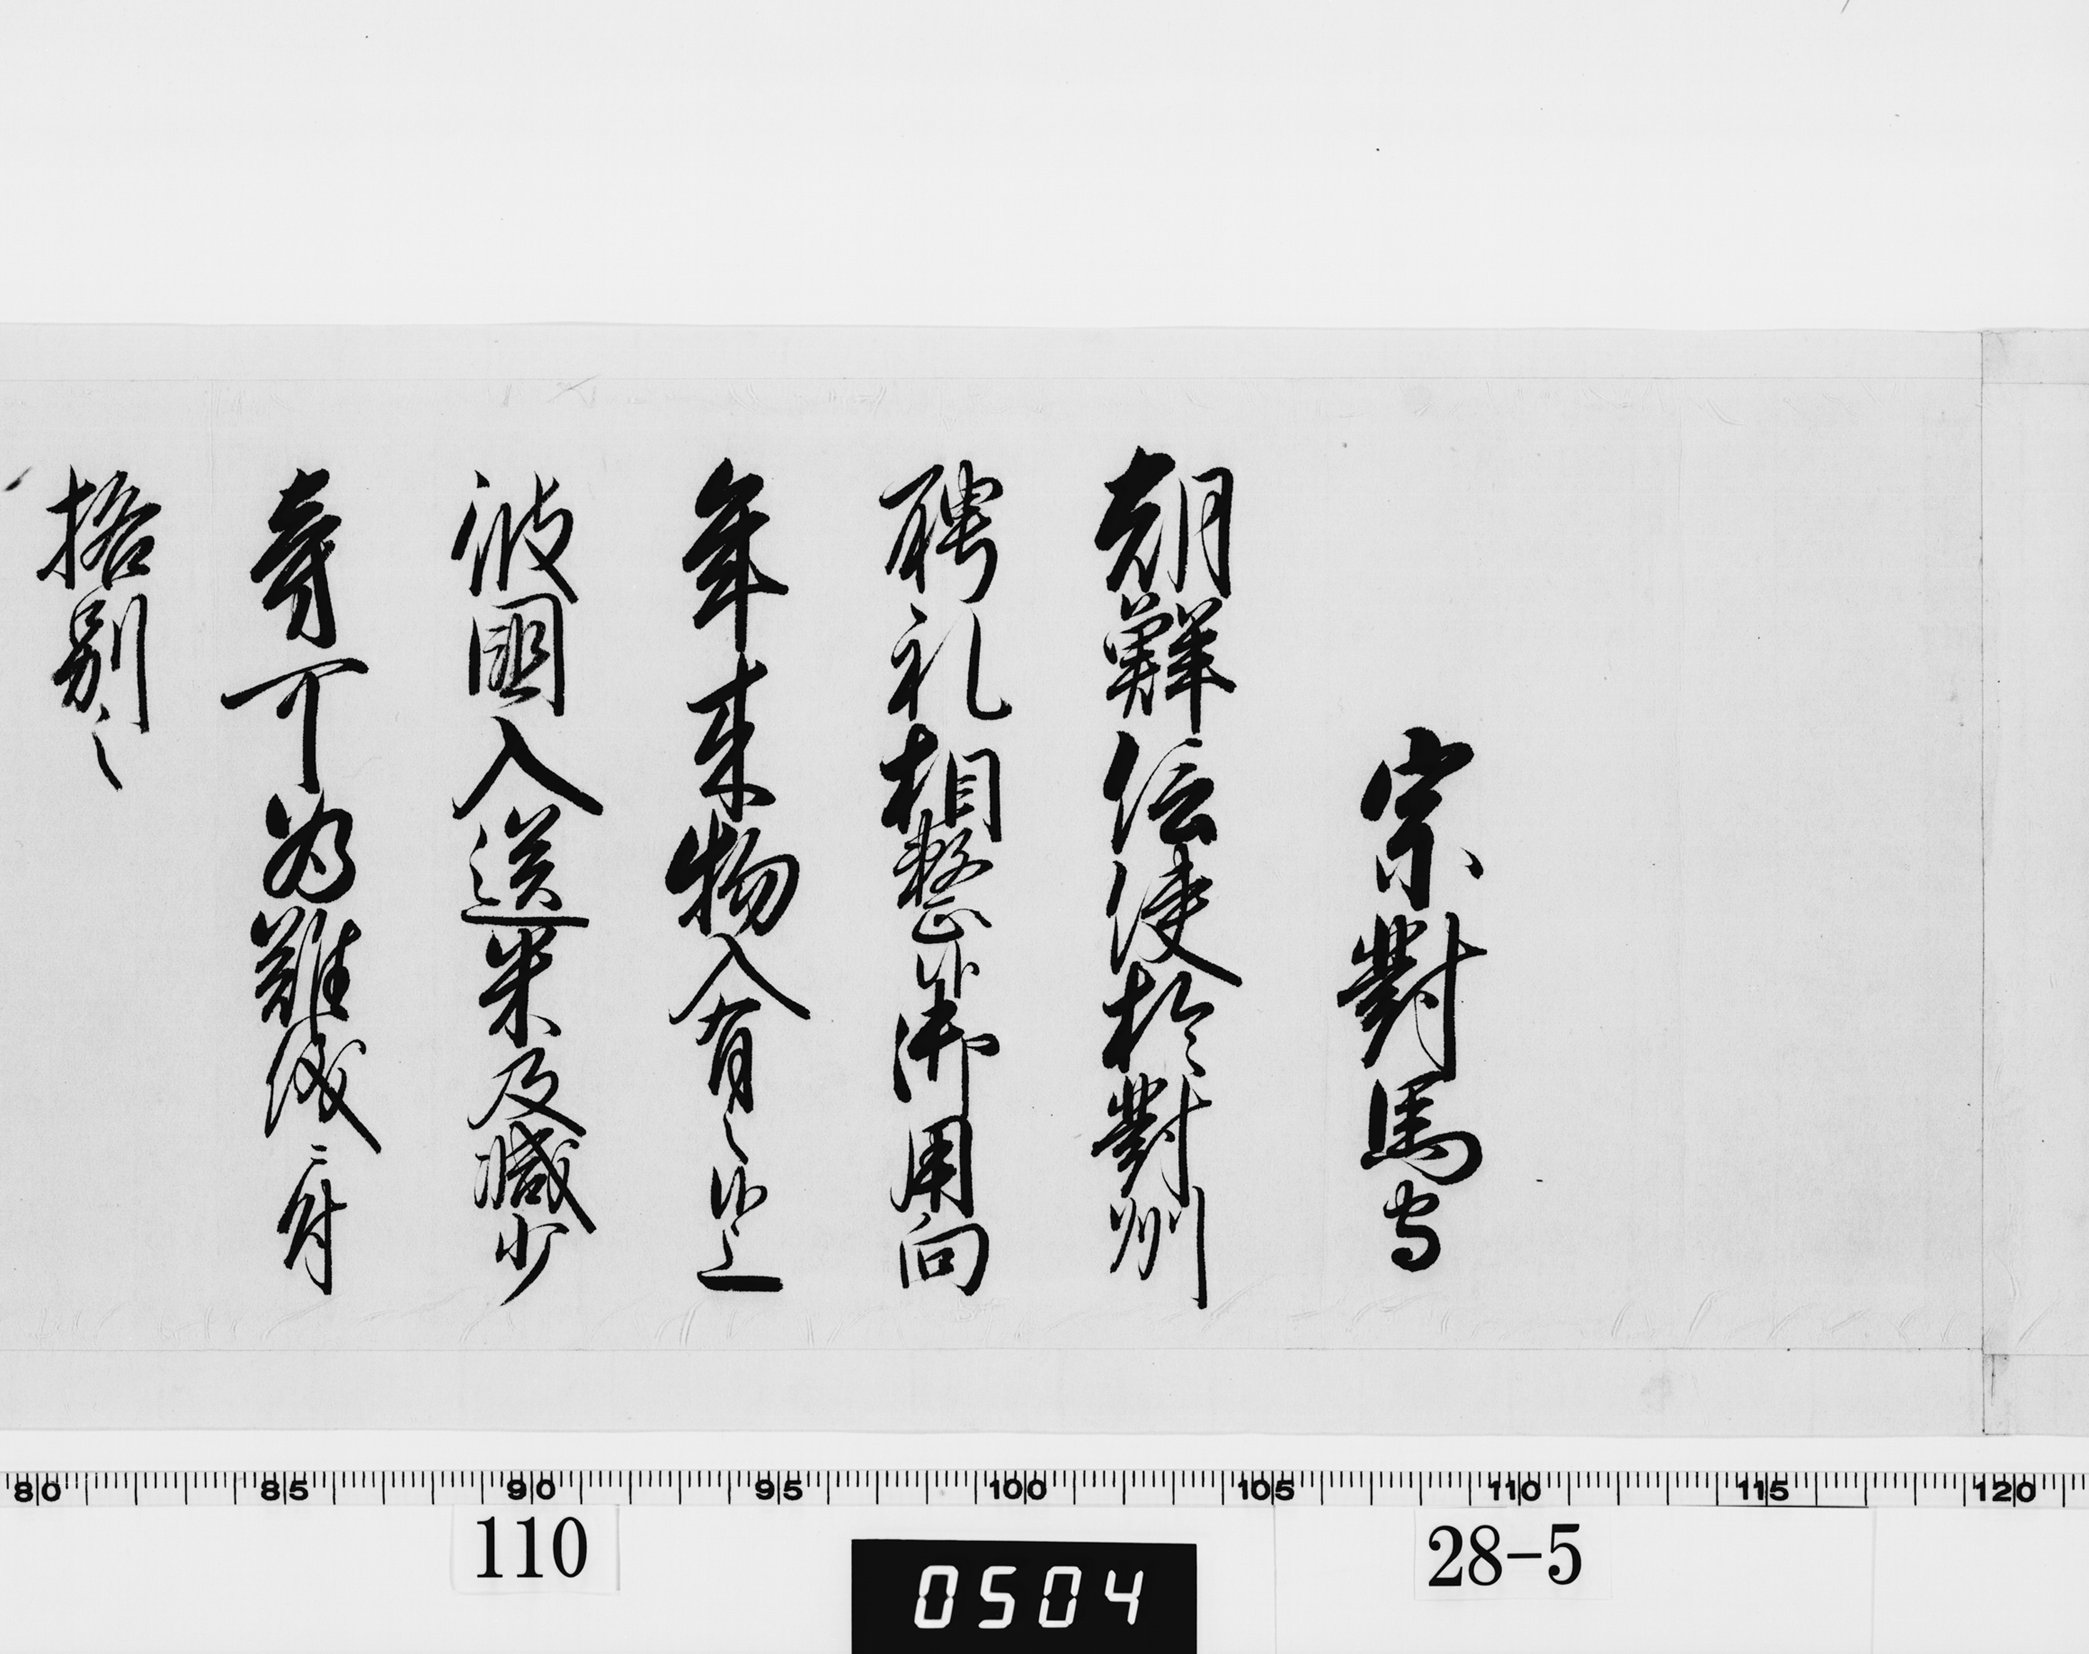 宗對馬守
朝鮮信使於對州
聘礼相整候御用向
年来物入有之候上
彼國入送米及減少
旁可為難儀ニ付
格別之
80 85 90 95 100 105 110 115 120
110
0504
28-5